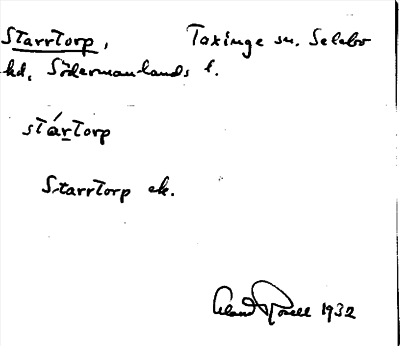 Starrtorp, Taxinge sn. Selebo
hd, Södermanlands l.
stártorp
Starrtorp ek.
1932